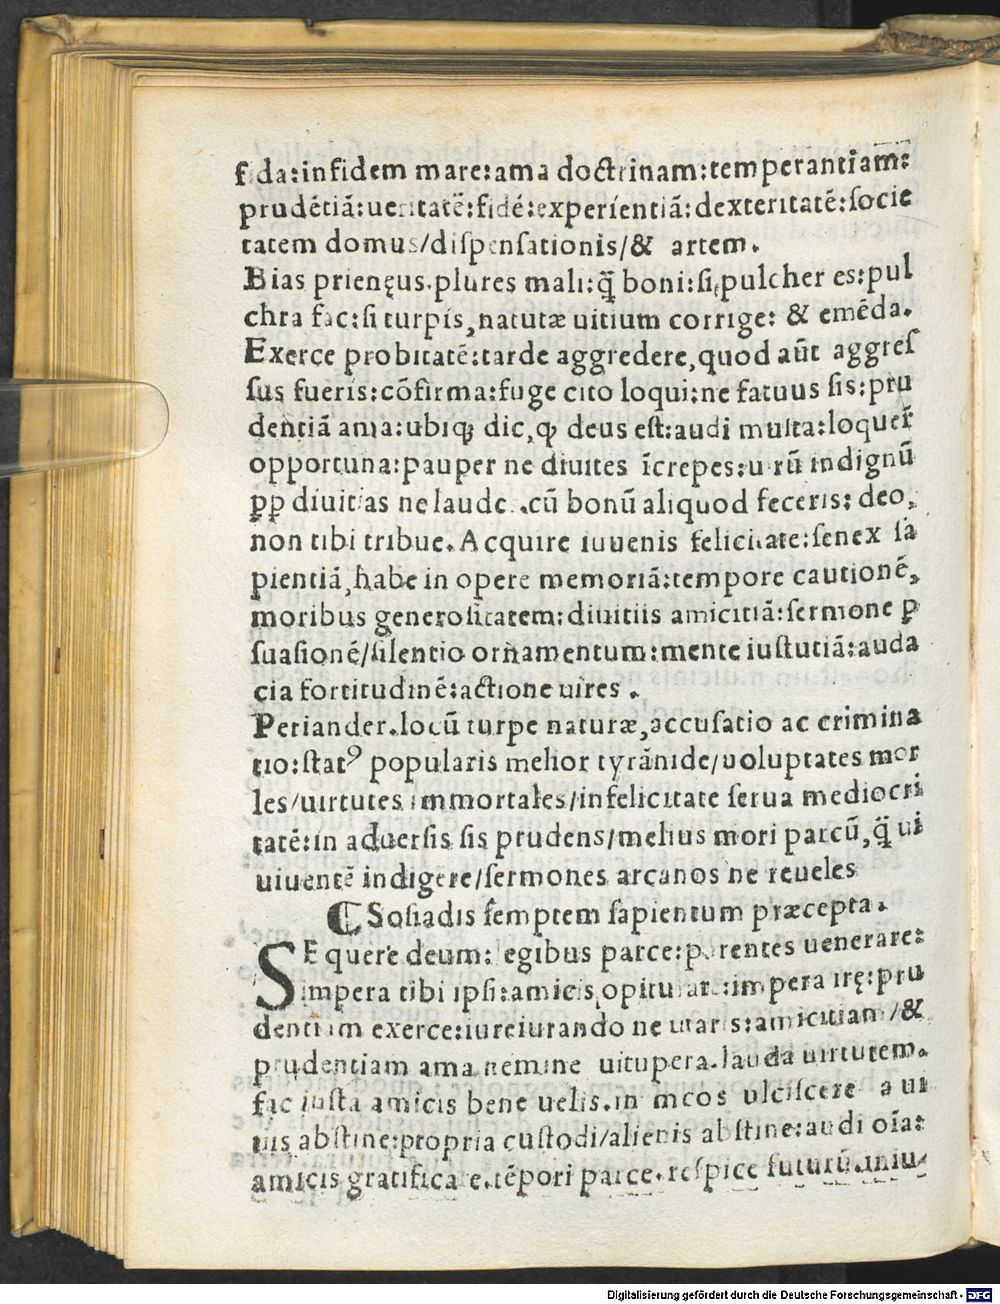 fida:infidem mare:ama doctrinam:temperantiam:
prudẽtiã:ueritatẽ:fidẽ:experientiã:dexteritatẽ:ſocie
tatem domus/diſpenſationis/& artem.
Bias prienęus.plures mali:q̃ boni:ſi,pulcher es:pul
chra fac:ſi turpis,naturæ uitium corrige: & emẽda.
Exerce probitatẽ:tarde aggredere,quod aũt aggreſ
ſus fueris:cõfirma:fuge cito loqui:ne fatuus ſis:pru
dentiã ama:ubiqꝫ dic,ꝙ deus eſt:audi multa:loquer̃
opportuna:pauper ne diuites ĩcrepes:uirũ indignũ
ꝓp diuitias ne laude .cũ bonũ aliquod feceris: deo,
non tibi tribue.Acquire iuuenis felicitate:ſenex ſa
pientiã,habe in opere memoriã:tempore cautionẽ,
moribus generoſitatem:diuitiis amicitiã:ſermone ꝑ
ſuaſionẽ/ſilentio ornamentum:mente iuſtitiã:auda
cia fortitudinẽ:actione uires.
Periander.locũ turpe naturæ,accuſatio ac crimina
tio:ſtatꝰ popularis melior tyrãnide/uoluptates mor
les/uirtutes immortales/infelicitate ſerua mediocri
tatẽ:in aduerſis ſis prudens/melius mori parcũ,q̃ ui
uiuentẽ indigere/ſermones arcanos ne reueles
¶ Soſiadis ſemptem ſapientum præcepta.
SEquere deum:legibus parce:parentes uenerare:
impera tibi ipſi:amicis opitulare:impera irę:pru
dentiam exerce:iureiurando ne utaris:amicitiam/&
prudentiam ama nemine uitupera.lauda uirtutem.
fac iuſta amicis bene uelis.in meos ulciſcere a ui
tiis abſtine:propria cuſtodi/alienis abſtine:audi oĩa:
amicis gratificare.tẽpori parce.reſpice futurũ.iniu
Digitalisierung gefördert durch die Deutsche Forschungsgemeinschaft - DFG